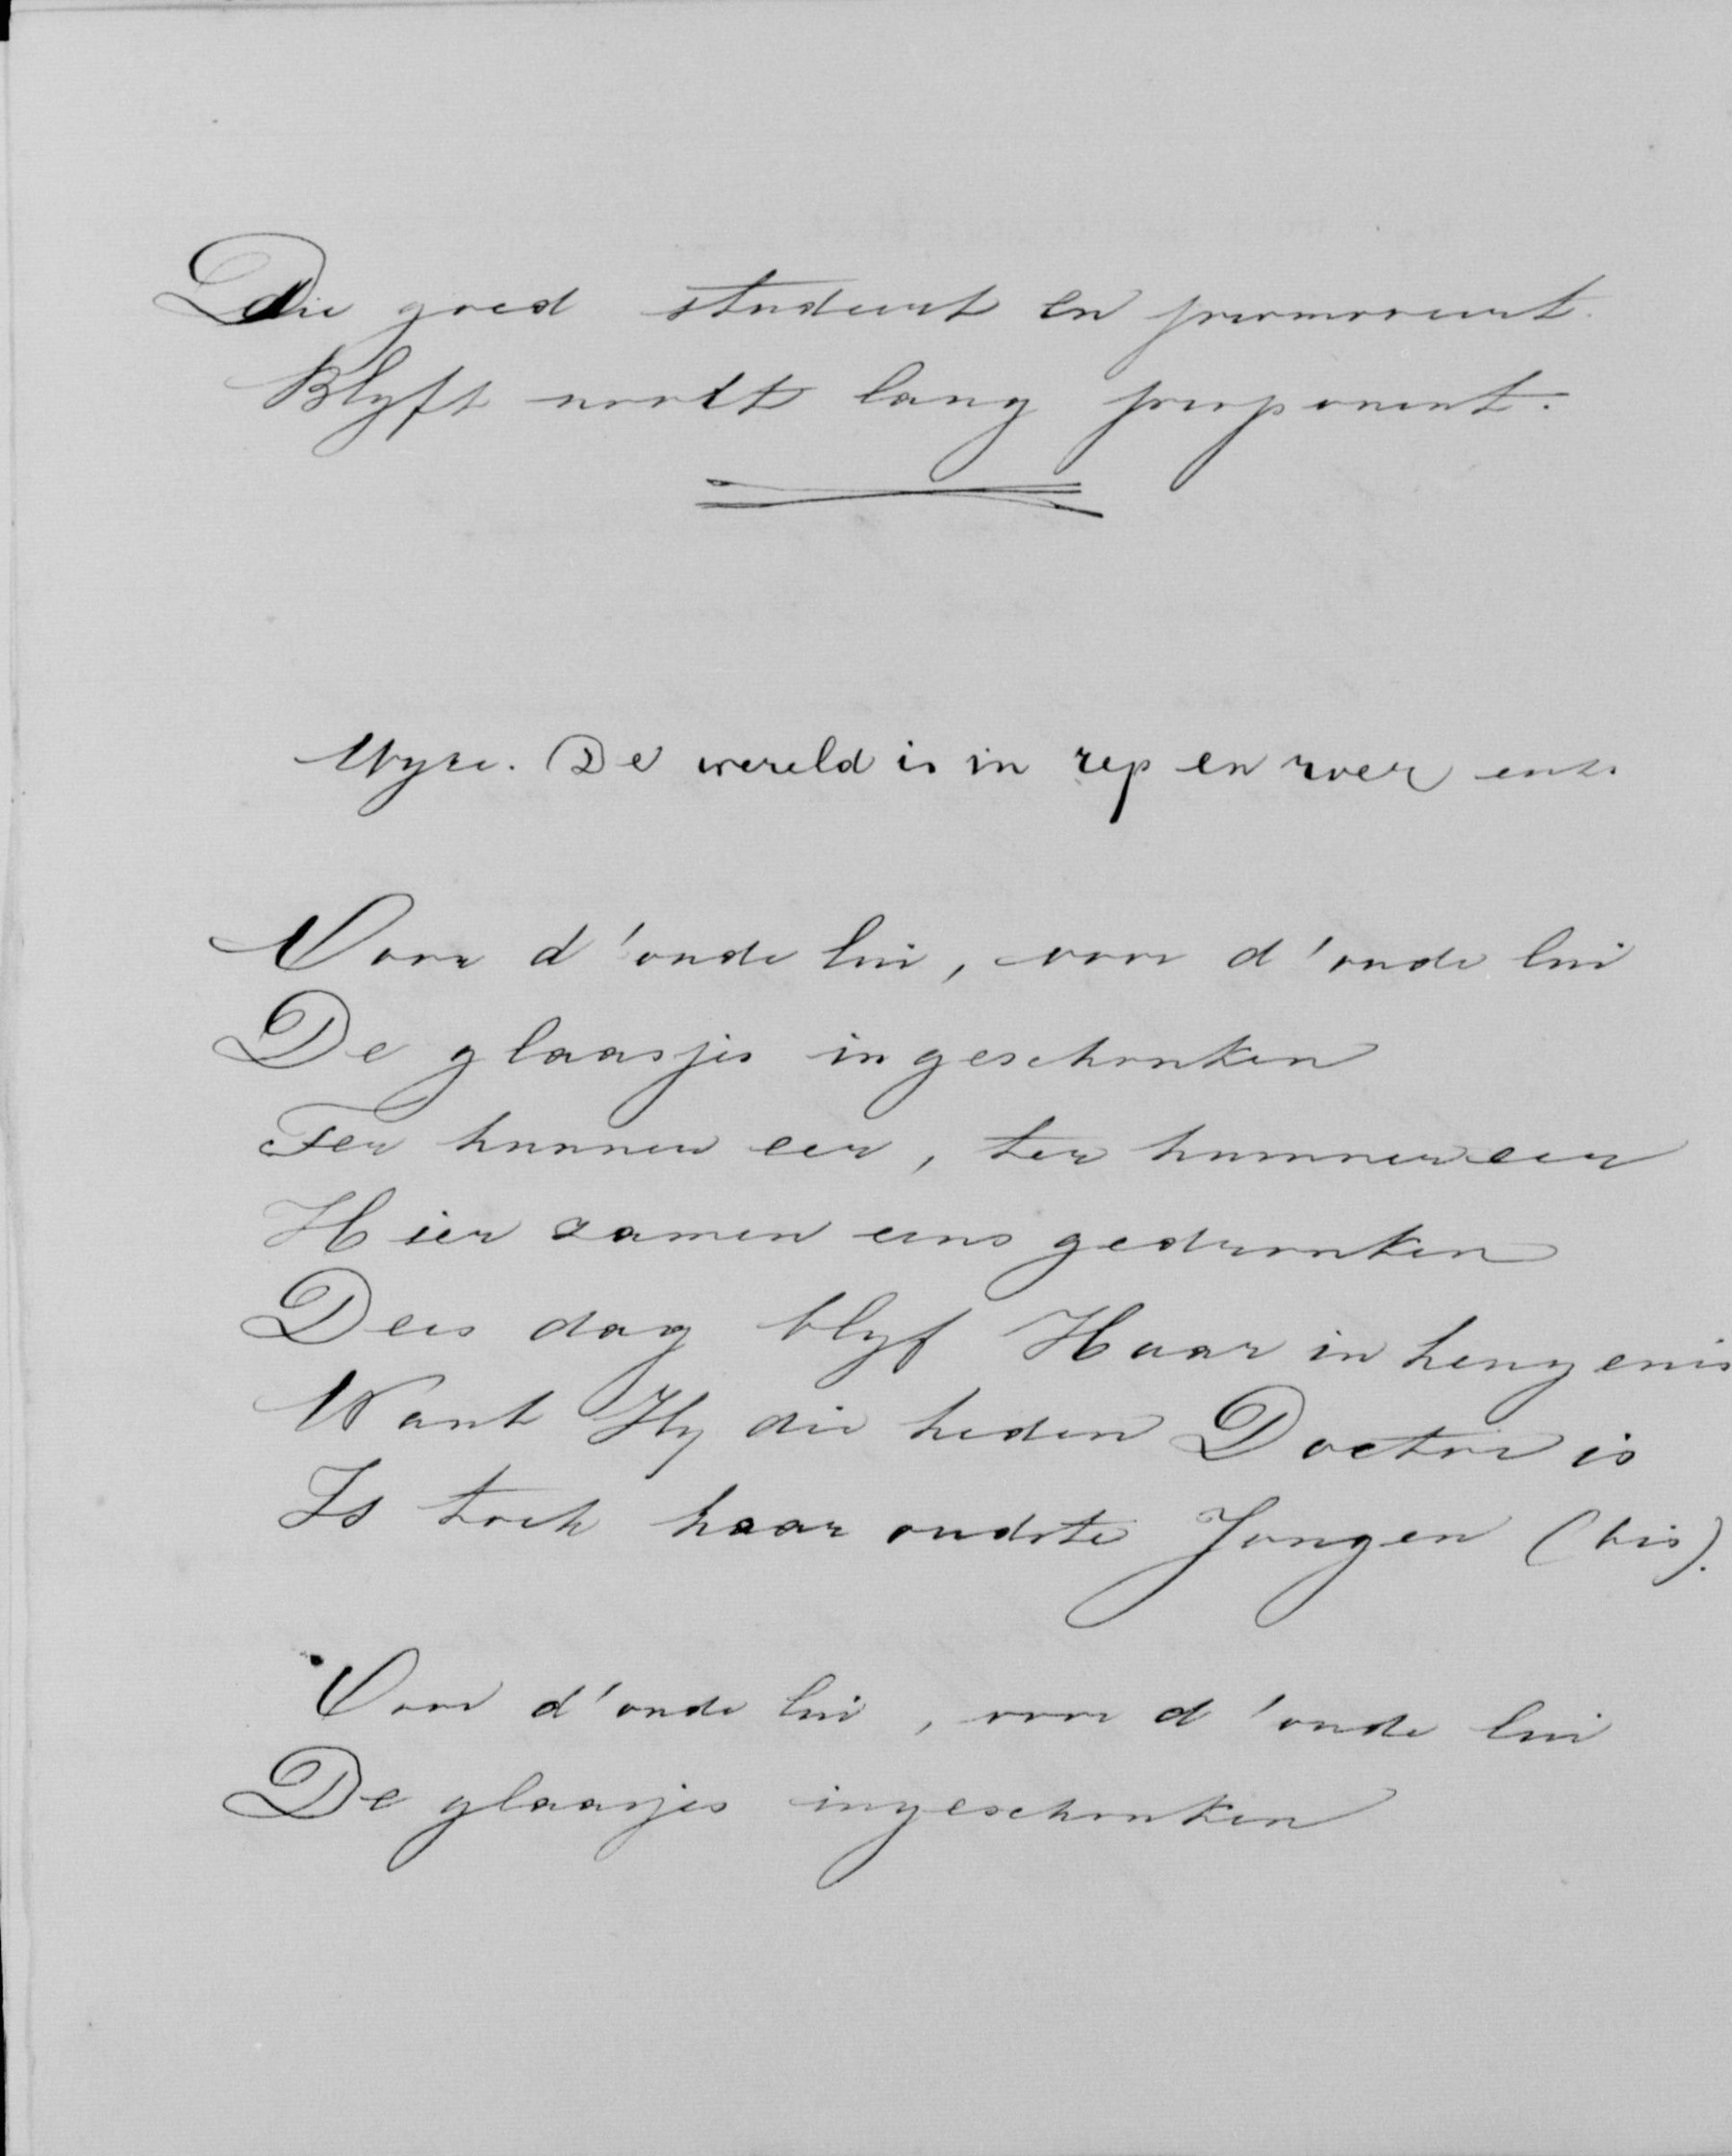 Die goed studeert en promoveert.
Blyft nooit lang proponent.
Wyze. De wereld is in rep en roer enz.
Voor d'oude lui, voor d'oude lui
De glaasjes ingeschonken
Ter hunner eer, ter hunner eer
Hier zamen eens gedronken
Dees dag blyf Haar in heugenis
Want Hy die heden Doctor is
Is toch haar oudste Jongen (bis).
Voor d'oude lui, voor d'oude lui
De glaasjes ingeschonken